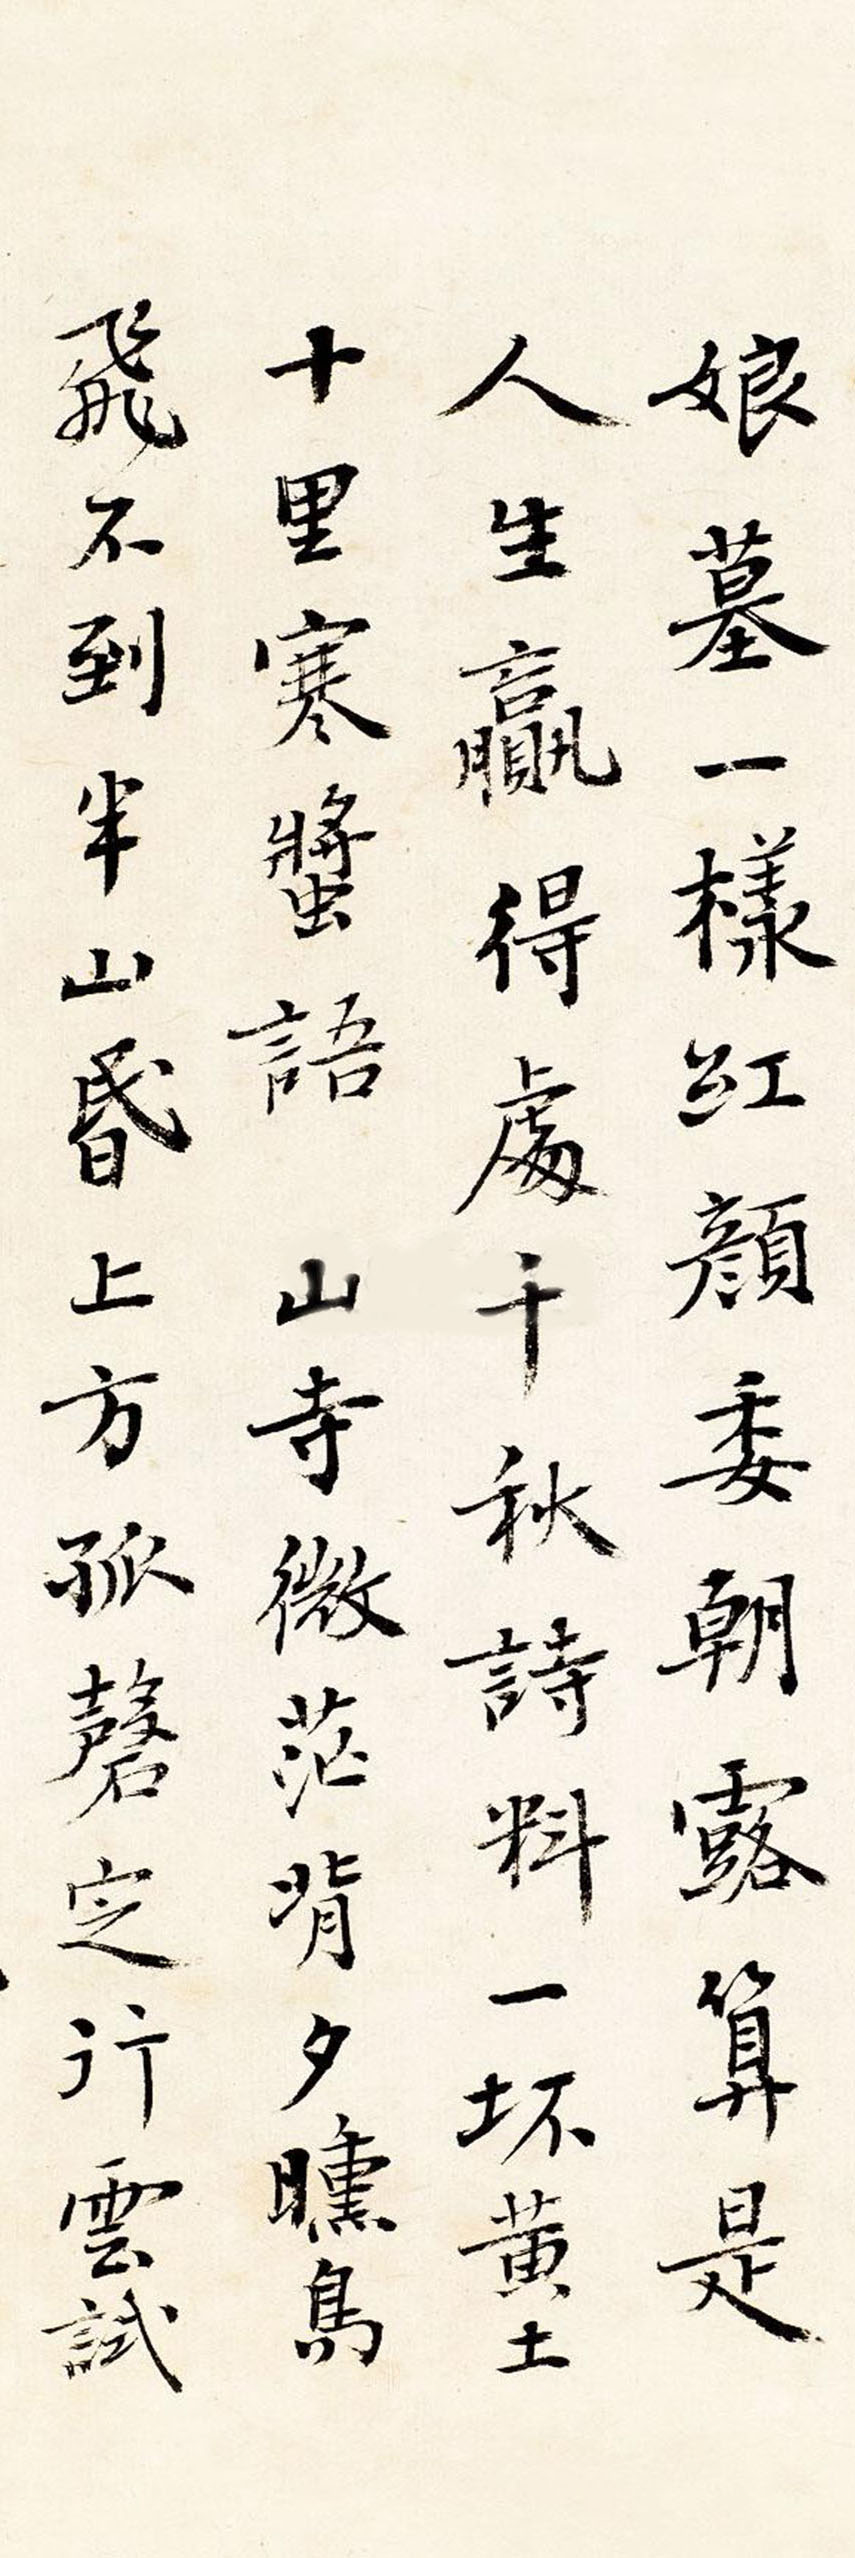 娘墓一樣紅顏委朝露算是
人生贏得處千秋詩料一坏黃土
十里寒螿語 山寺微茫背夕曛鳥
飛不到半山昏上方孤磬定行雲試